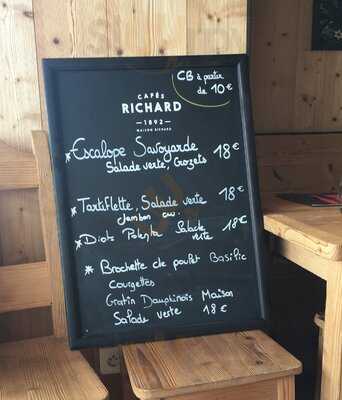 CB à partir
de 10€
CAFÉS
RICHARD
1892
MAISON RICHARD
* Escalope Savoyarde 18€
Salade verte, Crozets
* Tartiflette, Salade verte 18€
Jambon cru.
* Diots Polenta Salade verte 18€
* Brochette de poulet Basilic
Courgettes
Gratin Dauphinois Maison
Salade verte 18€